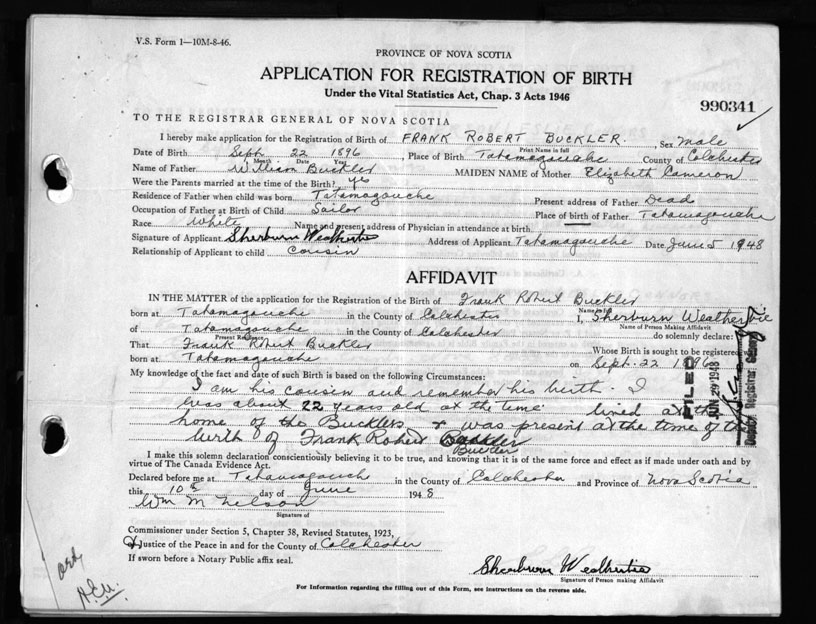 V.S. Form 1—10M-8-46.
PROVINCE OF NOVA SCOTIA
APPLICATION FOR REGISTRATION OF BIRTH
Under the Vital Statistics Act, Chap. 3 Acts 1946
990341
TO THE REGISTRAR GENERAL OF NOVA SCOTIA
I hereby make application for the Registration of Birth of FRANK ROBERT BUCKLER, Sex Male
Print Name in full
Date of Birth Sept 22 1896, Place of Birth Tatamagouche County of Colchester
Month Date Year
Name of Father William Buckler MAIDEN NAME of Mother Elizabeth Cameron
Were the Parents married at the time of Birth? yes
Residence of Father when child was born Tatamagouche Present address of Father Dead
Occupation of Father at Birth of Child Sailor Place of birth of Father Tatamagouche
Race White Name and present address of Physician in attendance at birth
Signature of Applicant Sherburn Weatherbie Address of Applicant Tatamagouche Date June 5 1948
Relationship of Applicant to child cousin
AFFIDAVIT
IN THE MATTER of the application for the Registration of the Birth of Frank Robert Buckler
Name in full
born at Tatamagouche in the County of Colchester I, Sherburn Weatherbie
Name of Person Making Affidavit
of Tatamagouche in the County of Colchester do solemnly declare:
Present Residence
That Frank Robert Buckler Whose Birth is sought to be registered
born at Tatamagouche on Sept. 22 1896
My knowledge of the fact and date of such Birth is based on the following Circumstances:
I am his cousin and remember his birth. I
was about 22 years old at the time lived at the
home of the Bucklers & was present at the time of the
birth of Frank Robert Buckler
Buckler
FILED
1948
Deputy Registrar General
I make this solemn declaration conscientiously believing it to be true, and knowing that it is of the same force and effect as if made under oath and by
virtue of The Canada Evidence Act.
Declared before me at Tatamagouch in the County of Colchester and Province of Nova Scotia
this 10th day of June 1948
Wm M Nelson
Signature of
Commissioner under Section 5, Chapter 38, Revised Statutes, 1923,
Justice of the Peace in and for the County of Colchester
If sworn before a Notary Public affix seal.
Sherburn Weatherbie
Signature of Person making Affidavit
For Information regarding the filling out of this Form, see instructions on the reverse side.